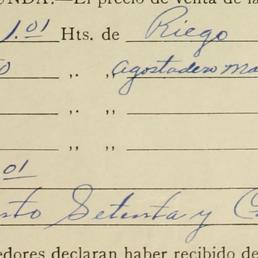 UNDA.—El precio de venta de la
1.01 Hts. de Riego
0 ,. ,, Agostadero Ma
,. ,,
,, ,,
01
nto Setenta y C
edores declaran haber recibido de